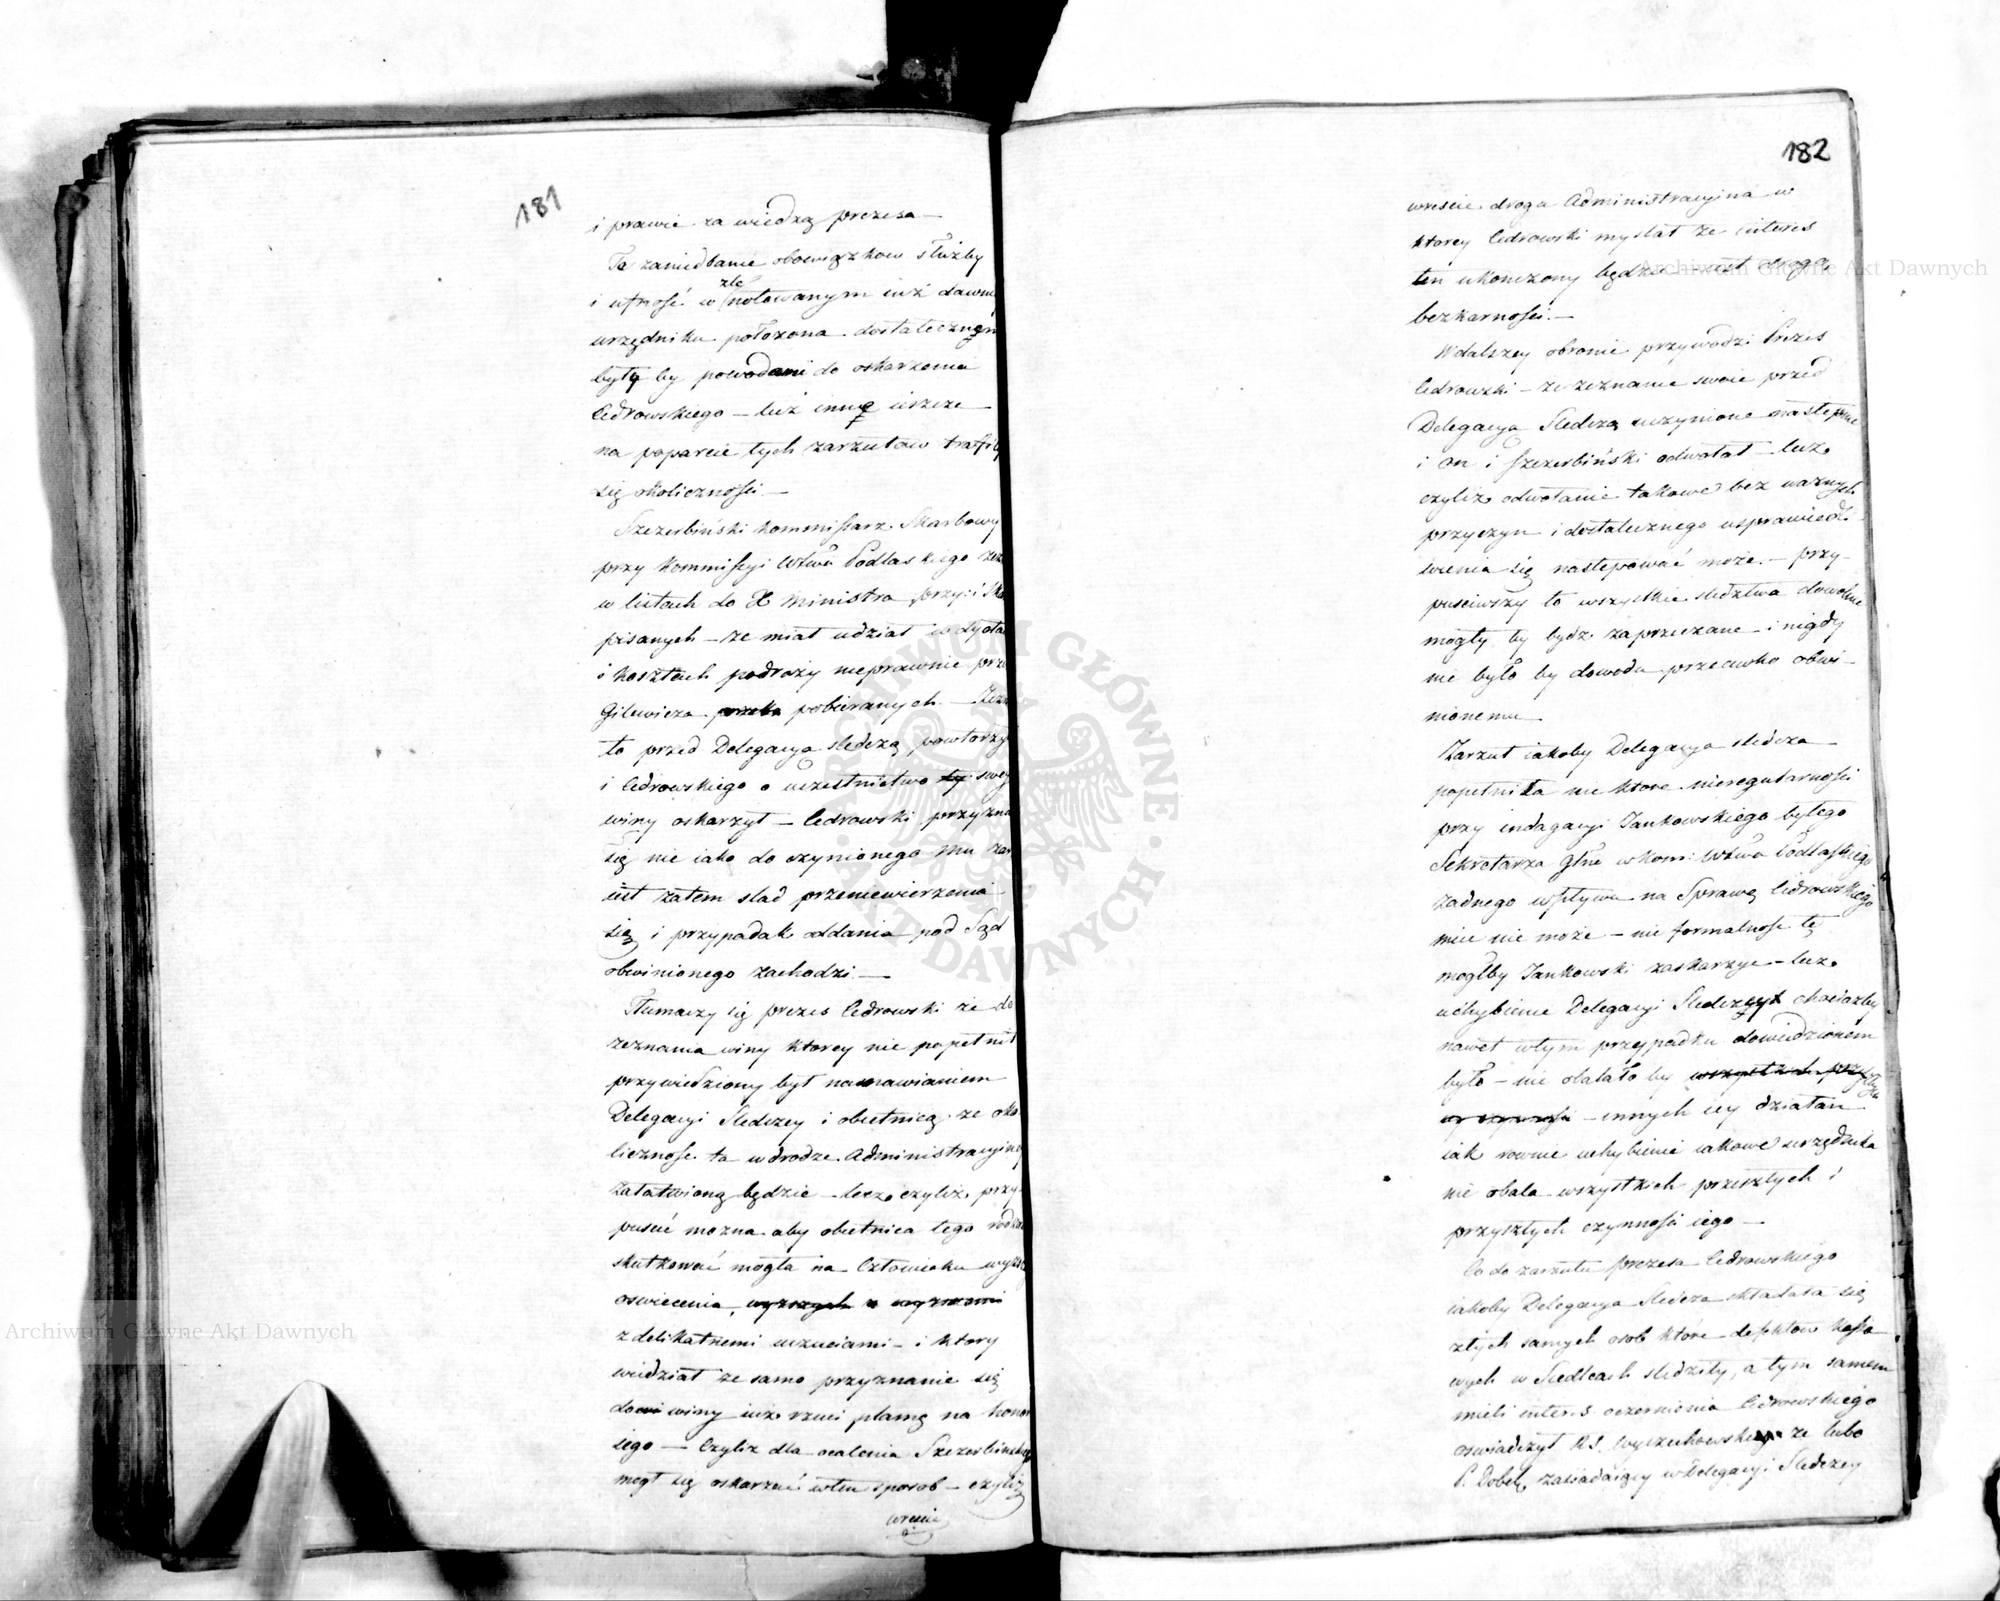 181
i prawie za wiedzą prezesa —
Te zaniedbanie obowiązkow służby
i ufność w źle notowanym iuż dawni
urzędniku położona dostatecznym
były by powodami do oskarzenia
Cedrowskiego — lecz inne ieszcze
na poparcie tych zarzutow trafiły
się okoliczności —
Szczerbiński Kommissarz Skarbowy
przy Kommissyi Wtwa Podlaskiego zez
w listach do X Ministra przy: i Ska
pisanych — ze miał udział w dyeta
i kosztach podroży nieprawnie prze
Gilewicza przeta pobieranych — Zezn
to przed Delegacyą sledczą powtorzy
i Cedrowskiego o uczestnictwo tey swey
winy oskarzył — Cedrowski przyzna
się nie iako do czynionego mu zar
iest zatem slad przeniewierzenia
się i przypadek oddania pod Sąd
obwinionego zachodzi —
Tłumaczy się prezes Cedrowski ze do
zeznania winy ktorey nie popełnił
przywiedziony był namawianiem
Delegacyi Sledczey i obietnicą ze oko
liczność ta w drodze Administracyiney
załatwioną będzie — lecz czyliz przy-
puscić mozna aby obietnica tego rodza
skutkować mogła na Człowieku wyższ
oswiecenia,
z delikatnemi uczuciami — i ktory
widział ze samo przyznanie się
do winy iuz rzuci plamę na honor
iego — Czyliz dla ocalenia Szczerbinskiego
mogł się oskarzać w ten sposob — czyliz
wrescie
182
wrescie droga Administracyina w
ktorey Cedrowski myslał ze interes
ten ukonczony będzie — iest drogą
bezkarności. —
W dalszey obronie przywodzi Prezes
Cedrowski — ze zeznanie swoie przed
Delegacyą Sledczą uczynione następnie
i on i Szczerbiński odwołał — lecz
czyliz odwołanie takowe bez waznych
przyczyn i dostatecznego usprawiedli-
wienia się nastepować może — przy-
pusciwszy to wszystkie sledztwa dowolnie
mogły by bydz zaprzeczane — i nigdy
nie było by dowodu przeciwko obwi-
nionemu —
Zarzut iakoby Delegacya sledcza —
popełniła nie ktore nieregularności
przy indagacyi Jankowskiego byłego
Sekretarza Głne w Kom: Wtwa Podlaskiego
żadnego wpływu na Sprawę Cedrowskiego
mieć nie może — nie formalność tę
mogłby Jankowski zaskarzyć — lecz
uchybienie Delegacyi Sledczey chociażby
nawet w tym przypadku dowiedzionem
było — nie obalało by wszystkich przyszłych
czynności — innych iey działań
iak rownie uchybienie iakowe urzędnika
nie obala wszystkich przeszłych i
przyszłych czynności iego —
Co do zarzutu prezesa Cedrowskiego
iakoby Delegacya Sledcza składała się
z tych samych osob które defektow Kasso
wych w Siedlcach sledziły, a tym samem
mieli interes oczernienia Cedrowskiego
oswiadczył R.S. Wyczechowski ze lubo
P. Dobek, zasiadaiący w Delegacyi Sledczey